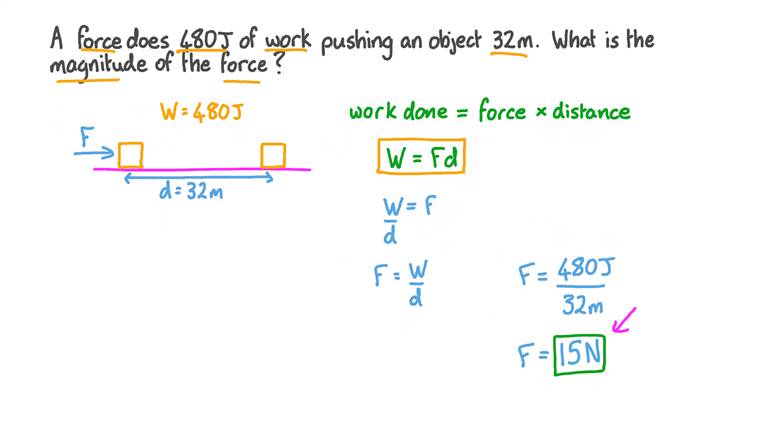 A force does 480J of work pushing an object 32m. What is the
magnitude of the force?
W = 480J
F
d = 32m
work done = force × distance
W = Fd
W/d = F
F = W/d
F = 480J/32m
F = 15N